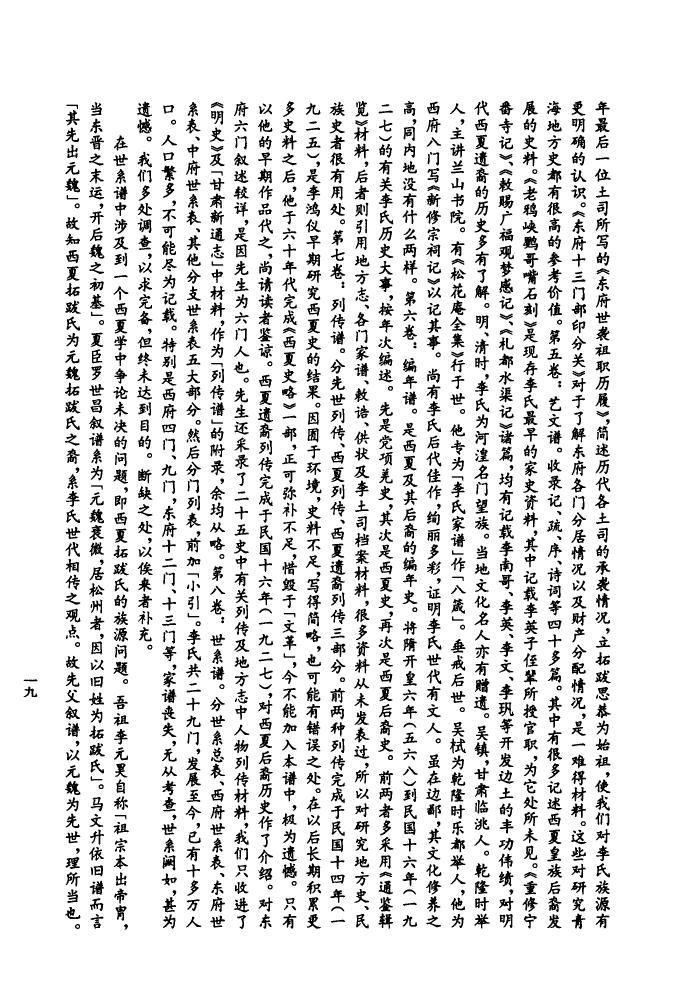 年最后一位土司所写的《东府世袭祖职历履》，简述历代各土司的承袭情况，立拓跋思恭为始祖，使我们对李氏族源有
更明确的认识。《东府十三门部印分关》对于了解东府各门分居情况以及财产分配情况，是一难得材料。这些对研究青
海地方史都有很高的参考价值。第五卷：艺文谱。收录记、疏、序、诗词等四十多篇。其中有很多记述西夏皇族后裔发
展的史料。《老鸦峡鹦哥嘴石刻》是现存李氏最早的家史资料，其中记载李英子侄辈所授官职，为它处所未见。《重修宁
番寺记》、《敕赐广福观梦感记》、《札都水渠记》诸篇，均有记载李南哥、李英、李文、李玑等开发边土的丰功伟绩，对明
代西夏遗裔的历史多有了解。明、清时，李氏为河湟名门望族。当地文化名人亦有赠遗。吴镇，甘肃临洮人。乾隆时举
人，主讲兰山书院。有《松花庵全集》行于世。他专为「李氏家谱」作「八箴」。垂戒后世。吴栻为乾隆时乐都举人，他为
西府八门写《新修宗祠记》以记其事。尚有李氏后代佳作，绚丽多彩，证明李氏世代有文人。虽在边鄙，其文化修养之
高，同内地没有什么两样。第六卷：编年谱。是西夏及其后裔的编年史。将隋开皇六年(五六八)到民国十六年(一九
二七)的有关李氏历史大事，按年次编述。先是党项羌史，其次是西夏史，再次是西夏后裔史。前两者多采用《通鉴辑
览》材料，后者则引用地方志、各门家谱、敕诰、供状及李土司档案材料，很多资料从未发表过，所以对研究地方史、民
族史者很有用处。第七卷：列传谱。分先世列传、西夏列传、西夏遗裔列传三部分。前两种列传完成于民国十四年(一
九二五)，是李鸿仪早期研究西夏史的结果。因囿于环境，史料不足，写得简略，也可能有错误之处。在以后长期积累更
多史料之后，他于六十年代完成《西夏史略》一部，正可弥补不足，惜毁于「文革」，今不能加入本谱中，极为遗憾。只有
以他的早期作品代之，尚请读者鉴谅。西夏遗裔列传完成于民国十六年(一九二七)，对西夏后裔历史作了介绍。对东
府六门叙述较详，是因先生为六门人也。先生还采录了二十五史中有关列传及地方志中人物列传材料，我们只收进了
《明史》及「甘肃新通志」中材料，作为「列传谱」的附录，余均从略。第八卷：世系谱。分世系总表、西府世系表、东府世
系表、中府世系表、其他分支世系表五大部分。然后分门列表，前加「小引」。李氏共二十九门，发展至今，已有十多万人
口。人口繁多，不可能尽为记载。特别是西府四门、九门，东府十二门、十三门等，家谱丧失，无从考查，世系阙如，甚为
遗憾。我们多处调查，以求完备，但终未达到目的。断缺之处，以俟来者补充。
在世系谱中涉及到一个西夏学中争论未决的问题，即西夏拓跋氏的族源问题。吾祖李元昊自称「祖宗本出帝胄，
当东晋之末运，开后魏之初基」。夏臣罗世昌叙谱系为「元魏衰微，居松州者，因以旧姓为拓跋氏」。马文升依旧谱而言
「其先出元魏」。故知西夏拓跋氏为元魏拓跋氏之裔，系李氏世代相传之观点。故先父叙谱，以元魏为先世，理所当也。
一九